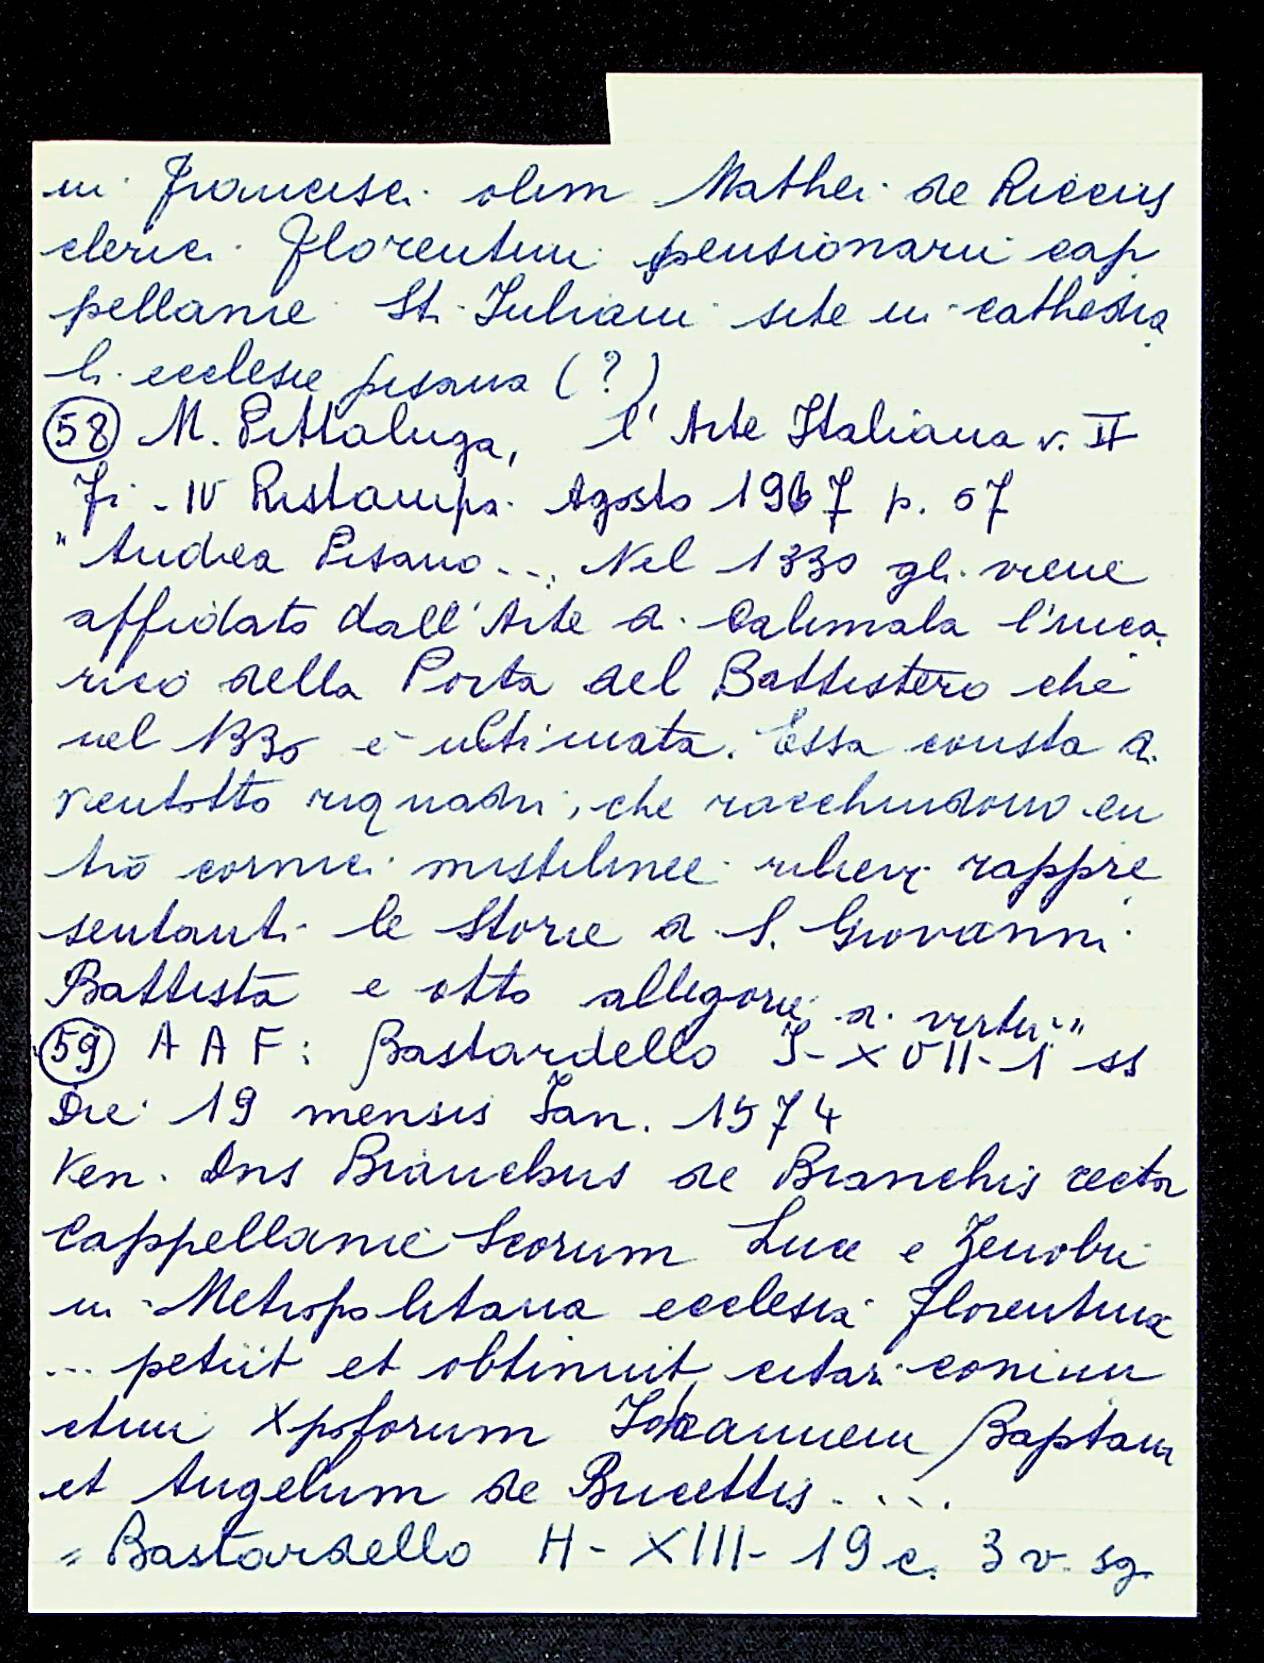 ni Francisci olim Mathei de Riccius
clerici Florentini pensionarii cap
pellanie Sti Iuliani site in cathedra
li ecclesie pisana (?)
(58) M. Pittaluga, l'Arte Italiana v. II
Fi - IV Ristampa Agosto 1967 p. 57
"Andrea Pisano... Nel 1330 gli viene
affidato dall'Arte di Calimala l'inca
rico della Porta del Battistero che
nel 1336 è ultimata. Essa consta di
ventotto riquadri, che racchiudono en
tro cornici mistilinee rilievi rappre
sentanti le Storie di S. Giovanni
Battista e otto allegorie di virtù"
(59) A A F: Bastardello I-XVII-1 ss
Die 19 mensis Ian. 1574
Ven. Dns Bianchus de Bianchis rector
Cappellanie Scorum Luce e Zenobii
in Metropolitana ecclesia florentina
... petiit et obtinuit citari coniun
ctim Xpoforum Iohannem Baptam
et Angelum de Bucettis.....
= Bastardello H - XIII - 19 c. 3 v. sg.